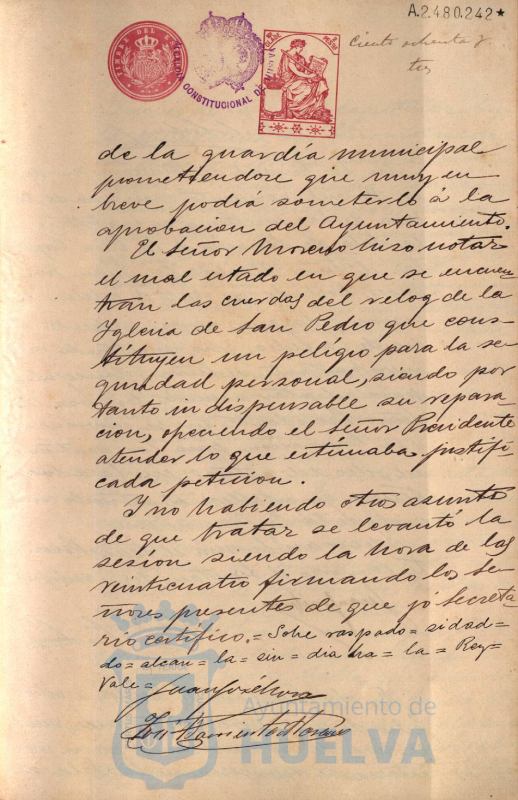 A.2.480.242★
TIMBRE DEL ESTADO
CONSTITUCIONAL DE
Ciento ochenta y
tres
de la guardia municipal
prometiendose que muy en
breve podiá someterlo á la
aprobacion del Ayuntamiento.
El Señor Moreno hizo notar
el mal estado en que se encuen-
tran las cuerdas del relog de la
Iglesia de San Pedro que cons-
tituyen un peligro para la se-
guridad personal, siendo por
tanto indispensable su repara-
cion, ofreciendo el Señor Presidente
atender lo que estimaba justifi-
cada peticion.
Y no habiendo otro asunto
de que tratar se levantó la
sesion siendo la hora de las
veinticuatro firmando los Se-
ñores presentes de que yó Secreta-
rio certifico.= Sobre raspado=
do= alcan= la= sin= dia= la= Rey=
Vale=
Ayuntamiento de
HUELVA